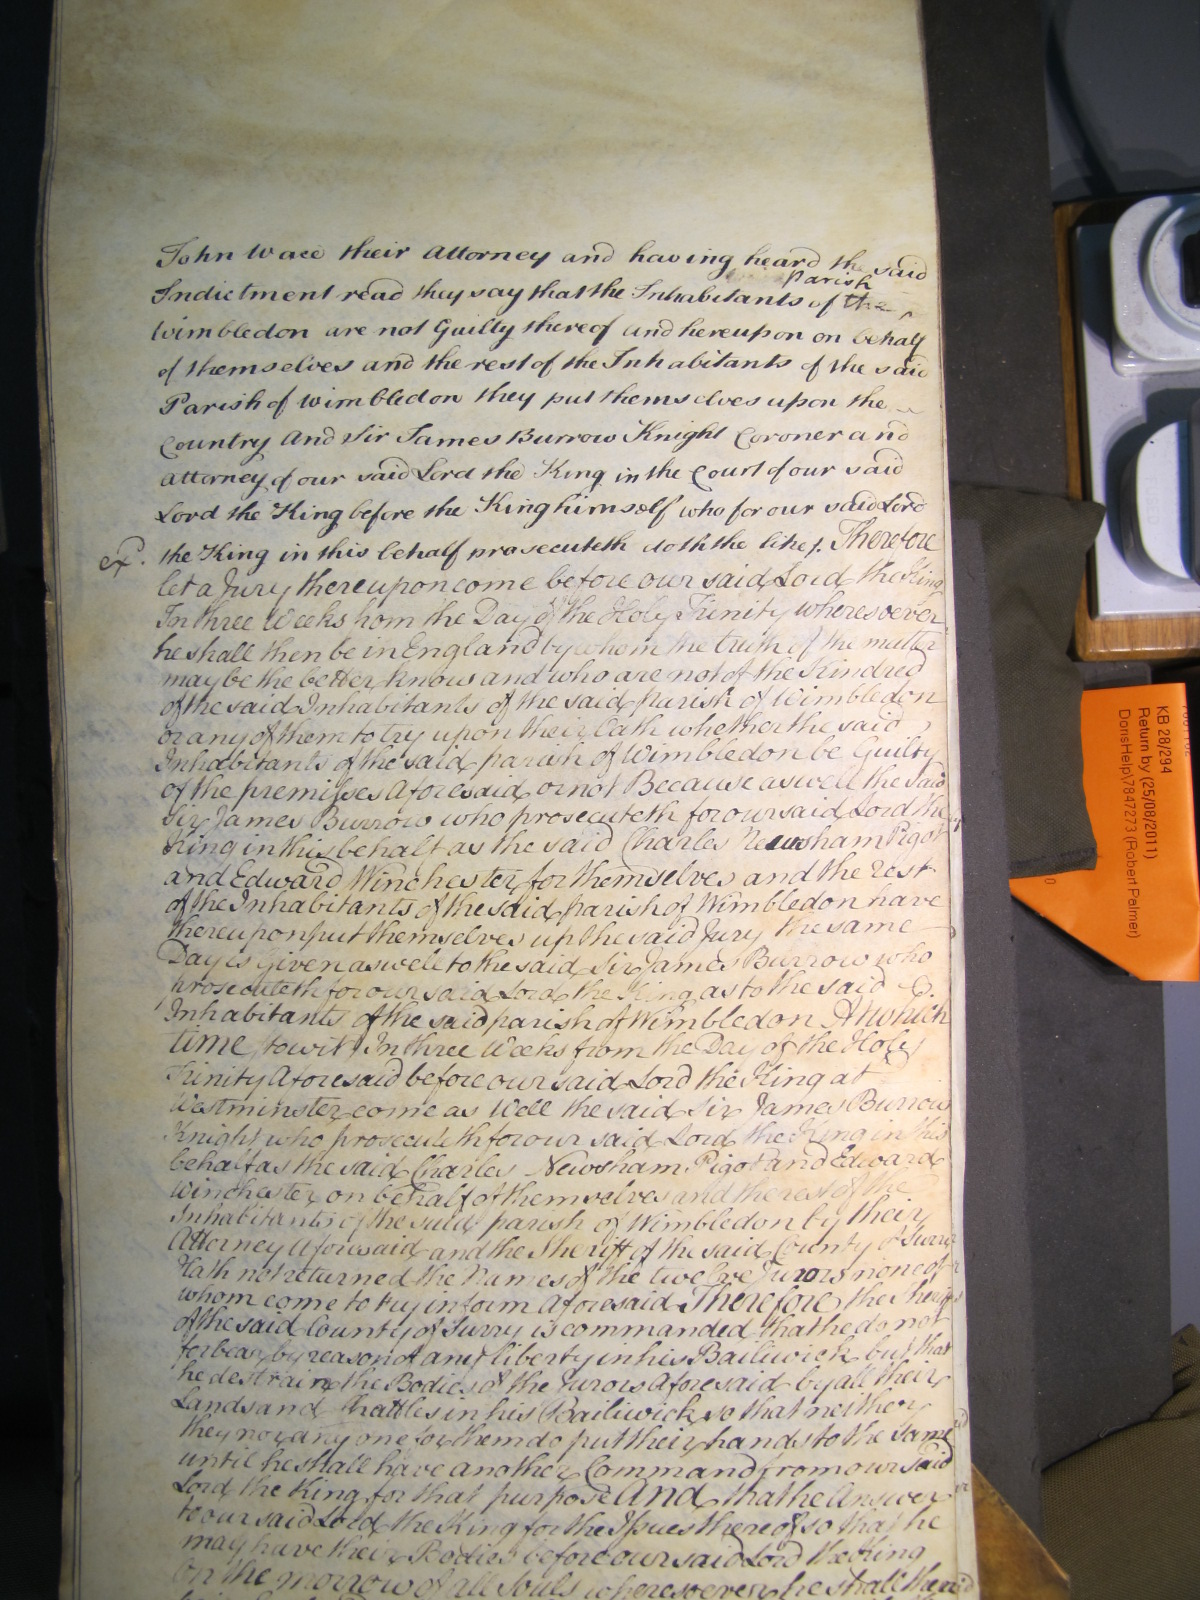 John Wace their Attorney and having heard the said
Parish
Indictment read they say that the Inhabitants of the
Wimbledon are not Guilty thereof and hereupon on behalf
of themselves and the rest of the Inhabitants of the said
Parish of Wimbledon they put themselves upon the
Country And Sir James Burrow Knight Coroner and
attorney of our said Lord the King in the Court of our said
Lord the King before the King himself who for our said Lord
ex. the King in this behalf prosecuteth doth the like. Therefore
let a Jury thereupon come before our said Lord the King
In three Weeks from the Day of the Holy Trinity wheresoever
he shall then be in England by whom the truth of the matter
may be the better known and who are not of the Kindred
of the said Inhabitants of the said parish of Wimbledon
or any of them to try upon their Oath whether the said
Inhabitants of the said parish of Wimbledon be Guilty
of the premisses Aforesaid or not Because as well the said
Sir James Burrow who prosecuteth for our said Lord the
King in this behalf as the said Charles Newsham Pigot
and Edward Winchester for themselves and the rest
of the Inhabitants of the said parish of Wimbledon have
thereupon put themselves up the said Jury the same
Day is Given as well to the said Sir James Burrow who
prosecuteth for our said Lord the King as to the said
Inhabitants of the said parish of Wimbledon At which
time to wit In three Weeks from the Day of the Holy
Trinity Aforesaid before our said Lord the King at
Westminster come as Well the said Sir James Burrow
Knight who prosecuteth for our said Lord the King in this
behalf as the said Charles Newsham Pigot and Edward
Winchester on behalf of themselves and the rest of the
Inhabitants of the said parish of Wimbledon by their
Attorney Aforesaid and the Sheriff of the said County of Surry
Hath not returned the Names of the twelve Jurors none of
whom come to try in form Aforesaid Therefore the Sheriff
of the said County of Surry is commanded that he do not
forbear by reason of any liberty in his Bailiwick but that
he destrain the Bodies of the Jurors Aforesaid by all their
Lands and Chattles in his Bailiwick so that neither
they nor any one for them do put their hands to the same
until he shall have another Command from our said
Lord the King for that purpose And that he Answer
to our said Lord the King for the Issues thereof so that he
may have their Bodies before our said Lord the King
On the morrow of all Souls wheresoever he shall then
KB 28/294
Return by (25/08/2011)
DorisHelp\7847273 (Robert Palmer)